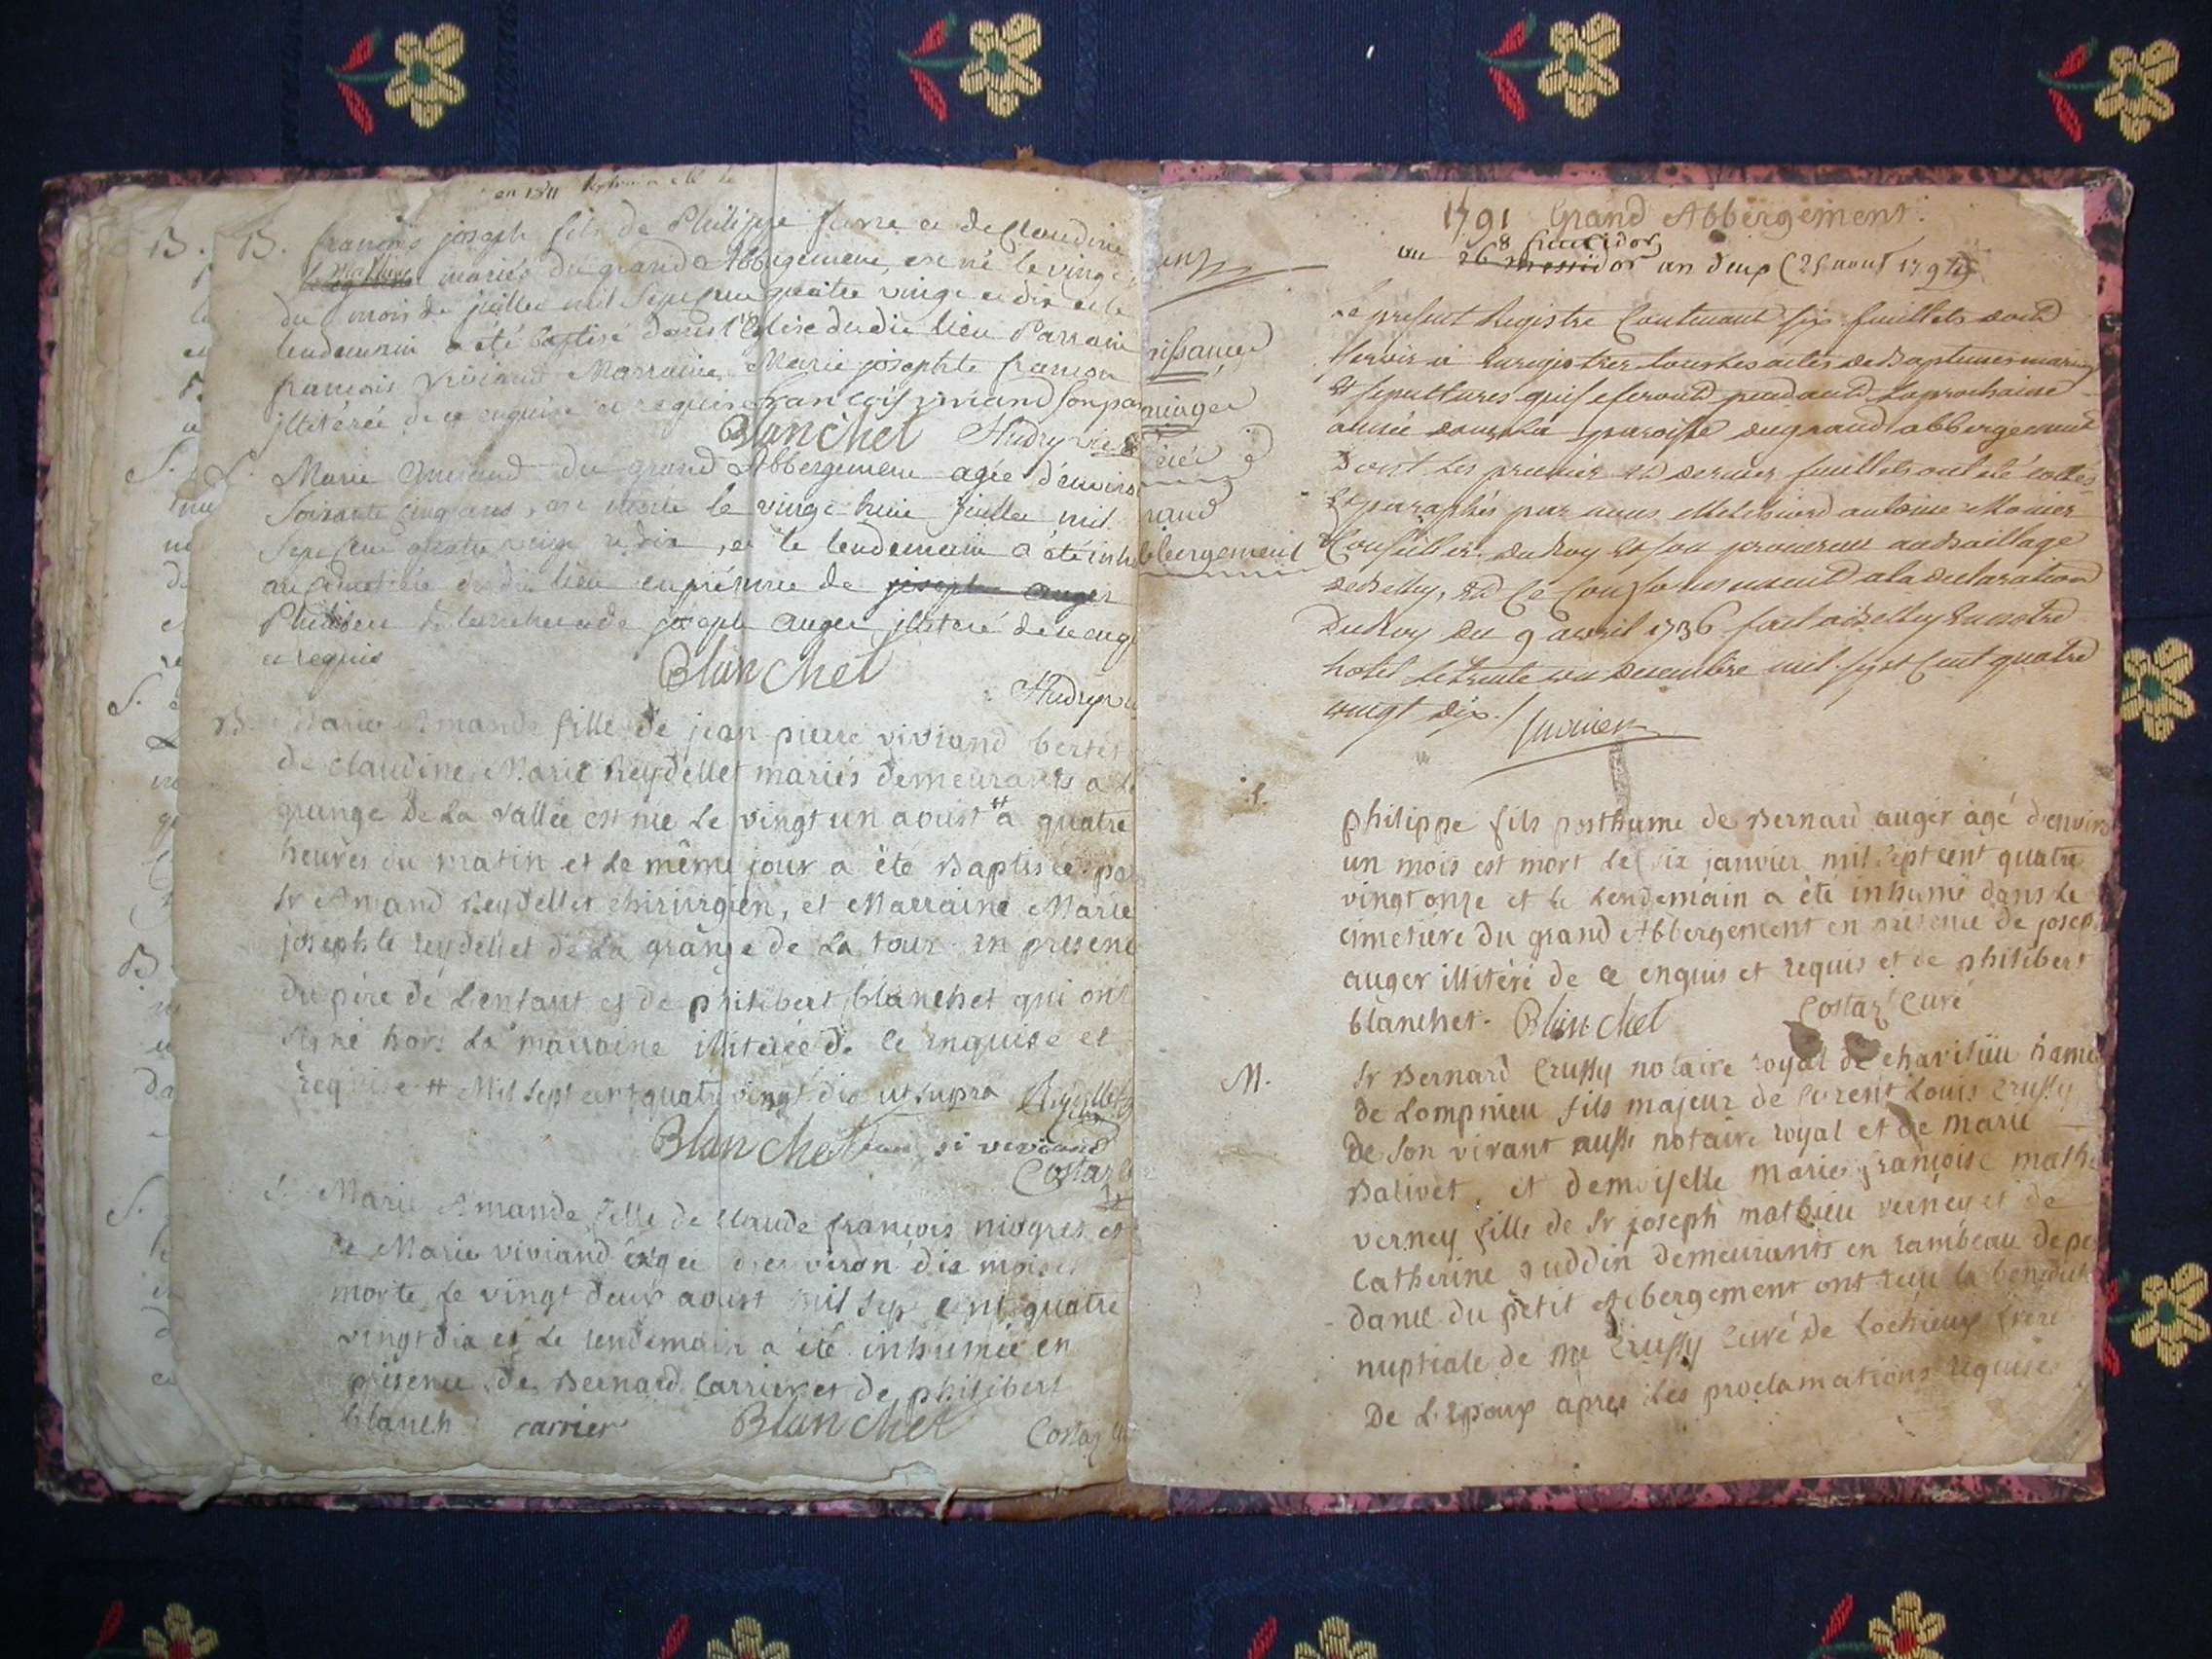 en 1811
B. B. françois joseph fils de Philippe farre et de Claudine
mariés du grand Abbergement, est né le vingt
du mois de juillet mil sept cent quatre vingt et dix et le
lendemain a été baptisé dans l'Eglise du dit lieu Parrain
françois viviand Marraine Marie josephte françon
illiterée de ce enquise et requise françois viviand son par
Blanchet Hudry
S. Marie du grand Abbergement agée d'environ
Soixante cinq ans, est morte le vingt huit juillet mil
Sept Cent quatre vingt et dix, et le lendemain a été inhu
au cimetière du dit lieu en présence de joseph auger
Philibert Blanchet et de joseph auger illiteré de ce enq
et requis
Blanchet
Hudry
B. Marie Amande fille de jean pierre viviand bertet
de claudine Marie Reydellet mariés demeurants a La
grange De La vallée est née Le vingt un aoust # a quatre
heures du matin et Le même jour a été Baptisée pa
Sr Amand Reydellet chirurgien, et Marraine Marie
josephte reydellet de La grange de La tour en presenc
Du père de L'enfant et de philibert blanchet qui ont
signé hors La marraine illiterée de ce enquise et
requise # Mil sept cent quatre vingt dix ut supra Reydellet
Blanchet viviand
Costaz
S. Marie Amande fille de claude françois niogres et
de Marie viviand âgée d'environ dix mois est
morte Le vingt deux aoust mil sept cent quatre
vingt dix et Le lendemain a été inhumée en
présence de Bernard Carrier et de philibert
blanch carrier Blanchet Costaz
1791 Grand Abbergement.
8 fructidor
au 26 messidor an deux (25 aout 1794)
Le present Registre Contenant six feuillets doit
servir à Enregistrer tous les actes de Baptemes mariag
Et sepultures qui se feront pendant La prochaine
année dans La paroisse du grand abbergement
Dont Les premier et dernier feuillets ont été cottés
Et paraphés par nous Melchior antoine Monier
Conseiller du Roy Et son procureur au Baillage
De Belley, Et Ce Conformement a la declaration
Du Roy du 9 avril 1736 fait a Belley En notre
hotel Le trente un decembre mil sept Cent quatre
vingt dix. / Monier
S. philippe fils posthume de Bernard auger agé d'enviro
un mois est mort Le six janvier mil sept cent quatre
vingt onze et le Lendemain a été inhumé dans Le
cimetière du grand Abbergement en présence de josep
auger illitéré de ce enquis et requis et de philibert
blanchet. Blanchet Costaz Curé
M. Sr Bernard Crussy notaire royal de charillin hame
de Lompnieu fils majeur de Laurent Louis Crussy
De son vivant aussi notaire royal et de marie
Balivet, et demoiselle marie françoise mathi
verney fille de Sr joseph mathieu verney et de
Catherine demeurants en rambeau depe
dance du petit Abbergement ont reçu la bénédict
nuptiale de me Crussy Curé de Lochieux frere
De L'Epoux après Les proclamations requises